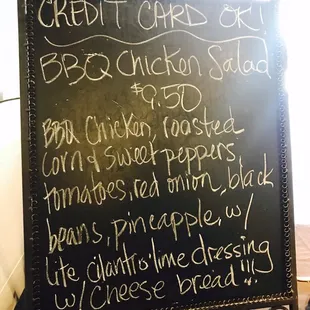 CREDIT CARD OK!
BBQ Chicken Salad
$9.50
BBQ Chicken, roasted
corn & sweet peppers,
tomatoes, red onion, black
beans, pineapple, w/
lite, cilantro lime dressing
w/ cheese bread!!!